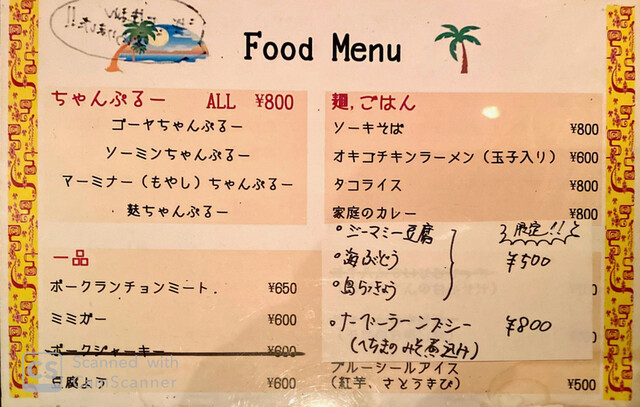 Food Menu
ちゃんぷるー ALL ¥800
ゴーヤちゃんぷるー
ソーミンちゃんぷるー
マーミナー（もやし）ちゃんぷるー
麩ちゃんぷるー
一品
ポークランチョンミート. ¥650
ミミガー ¥600
ポークジャーキー ¥600
豆腐よう ¥600
麺,ごはん
ソーキそば ¥800
オキコチキンラーメン（玉子入り） ¥600
タコライス ¥800
家庭のカレー ¥800
限定!!
•ジーマミー豆腐
•海ぶどう ¥500
•島らっきょう
•ナーベーラーンブシー ¥800
(へちまのみそ煮込み)
ブルーシールアイス
（紅芋、さとうきび） ¥500
CS
Scanned with
CamScanner